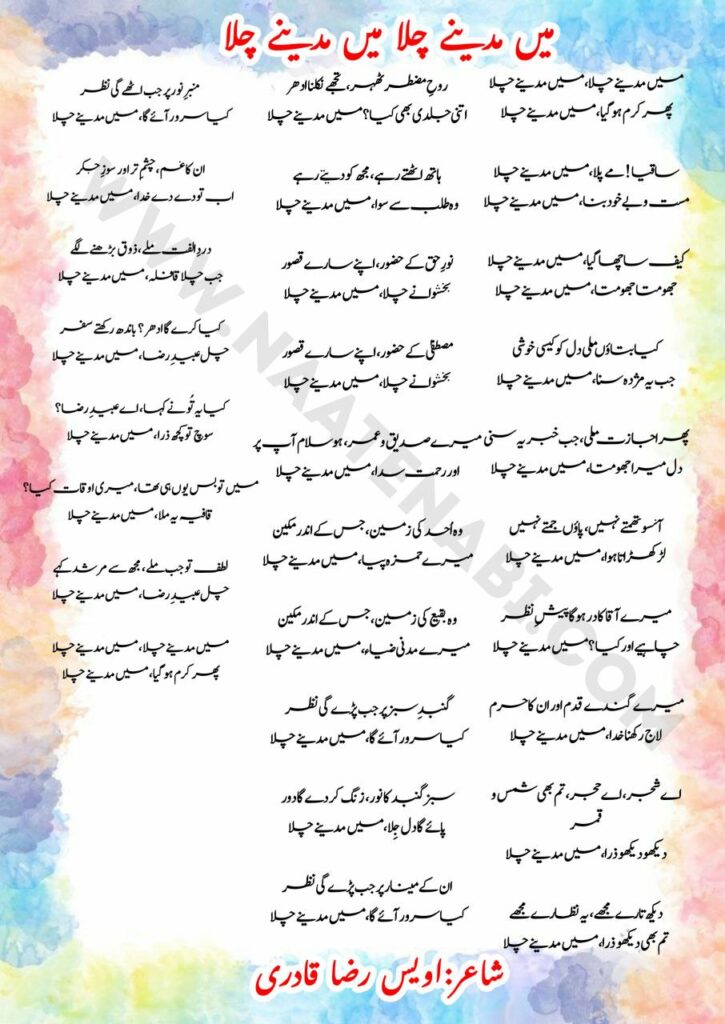 میں مدینے چلا میں مدینے چلا
میں مدینے چلا، میں مدینے چلا
پھر کرم ہو گیا، میں مدینے چلا
ساقیا! مے پلا، میں مدینے چلا
مست و بے خود بنا، میں مدینے چلا
کیف سا چھا گیا، میں مدینے چلا
جھومتا جھومتا، میں مدینے چلا
کیا بتاؤں ملی دل کو کیسی خوشی
جب یہ مژدہ سنا، میں مدینے چلا
پھر اجازت ملی، جب خبر یہ سنی
دل میرا جھومتا، میں مدینے چلا
آنسو تھمتے نہیں، پاؤں جمتے نہیں
لڑکھڑاتا ہوا، میں مدینے چلا
میرے آقا کا در ہوگا پیشِ نظر
چاہیے اور کیا؟ میں مدینے چلا
میرے گندے قدم اور ان کا حرم
لاج رکھنا خدا، میں مدینے چلا
اے شجر، اے حجر، تم بھی شمس و
قمر
دیکھو دیکھو ذرا، میں مدینے چلا
دیکھ تارے مجھے، یہ نظارے مجھے
تم بھی دیکھو ذرا، میں مدینے چلا
روحِ مضطر ٹھہر، تجھے نکلنا ادھر
اتنی جلدی بھی کیا؟ میں مدینے چلا
ہاتھ اٹھتے رہے، مجھ کو دیتے رہے
وہ طلب سے سوا، میں مدینے چلا
نورِ حق کے حضور، اپنے سارے قصور
بخشوانے چلا، میں مدینے چلا
مصطفٰی کے حضور، اپنے سارے قصور
بخشوانے چلا، میں مدینے چلا
میرے صدیق و عمر، ہو سلام آپ پر
اور رحمت سدا، میں مدینے چلا
وہ اُحد کی زمین، جس کے اندر مکین
میرے حمزہ پیا، میں مدینے چلا
وہ بقیع کی زمین، جس کے اندر مکین
میرے مدنی ضیاء، میں مدینے چلا
گنبدِ سبز پر جب پڑے گی نظر
کیا سرور آئے گا، میں مدینے چلا
سبز گنبد کا نور، زنگ کر دے گا دور
پائے گا دل جِلا، میں مدینے چلا
ان کے مینار پر جب پڑے گی نظر
کیا سرور آئے گا، میں مدینے چلا
منبرِ نور پر جب اٹھے گی نظر
کیا سرور آئے گا، میں مدینے چلا
ان کا غم، چشمِ تر اور سوزِ جگر
اب تو دے دے خدا، میں مدینے چلا
دردِ الفت ملے، ذوق بڑھنے لگے
جب چلا قافلہ، میں مدینے چلا
کیا کرے گا ادھر؟ باندھ رکھتے سفر
چل عبیدِ رضا، میں مدینے چلا
کیا یہ تُو نے کہا، اے عبیدِ رضا؟
سوچ تو کچھ ذرا، میں مدینے چلا
میں تو بس یوں ہی تھا، میری اوقات کیا؟
قافیہ یہ ملا، میں مدینے چلا
لطف تو جب ملے، مجھ سے مرشد کہے
چل عبیدِ رضا، میں مدینے چلا
میں مدینے چلا، میں مدینے چلا
پھر کرم ہو گیا، میں مدینے چلا
شاعر: اویس رضا قادری
WWW.NAATENABI.COM